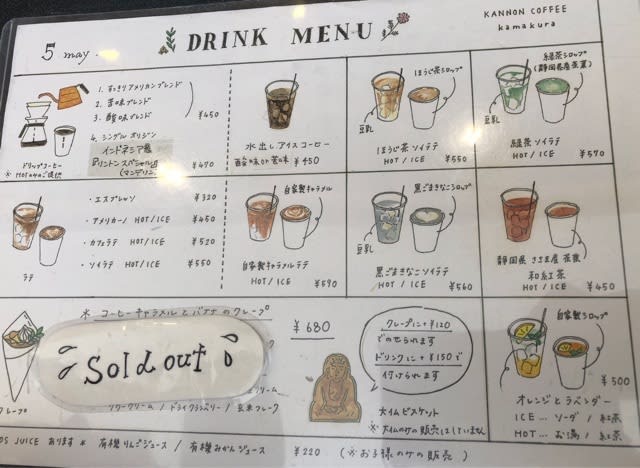 5 may.
DRINK MENU
KANNON COFFEE
kamakura
1. すっきりアメリカンブレンド
2. 苦味ブレンド
3. 酸味ブレンド
¥450
4. シングルオリジン
インドネシア産
『リントンスペシャル』
(マンデリン)
¥470
ドリップコーヒー
※HOTのみのご提供
水出しアイスコーヒー
酸味 or 苦味 ¥450
ほうじ茶シロップ
豆乳
ほうじ茶ソイラテ
HOT / ICE ¥550
緑茶シロップ
(静岡県産茶葉)
豆乳
緑茶ソイラテ
HOT / ICE ¥570
ラテ
・エスプレッソ ¥320
・アメリカーノ HOT / ICE ¥450
・カフェラテ HOT / ICE ¥520
・ソイラテ HOT / ICE ¥550
自家製キャラメル
自家製キャラメルラテ
HOT / ICE ¥590
黒ごまきなこシロップ
豆乳
黒ごまきなこソイラテ
HOT / ICE ¥560
静岡県 産 茶葉
和紅茶
HOT / ICE ¥450
コーヒーキャラメルとバナナのクレープ
¥680
Sold out
クリーム
サワークリーム / ドライクランベリー / 玄米フレーク
クレープ
クレープに+¥120
でのせられます
ドリンクに+¥150で
付けられます
大仏ビスケット
※大仏のみの販売はしていません
自家製シロップ
¥500
オレンジとラベンダー
ICE... ソーダ / 紅茶
HOT... お湯 / 紅茶
DS JUICE あります * 有機りんごジュース / 有機みかんジュース ¥220 (※お子様のみの販売)